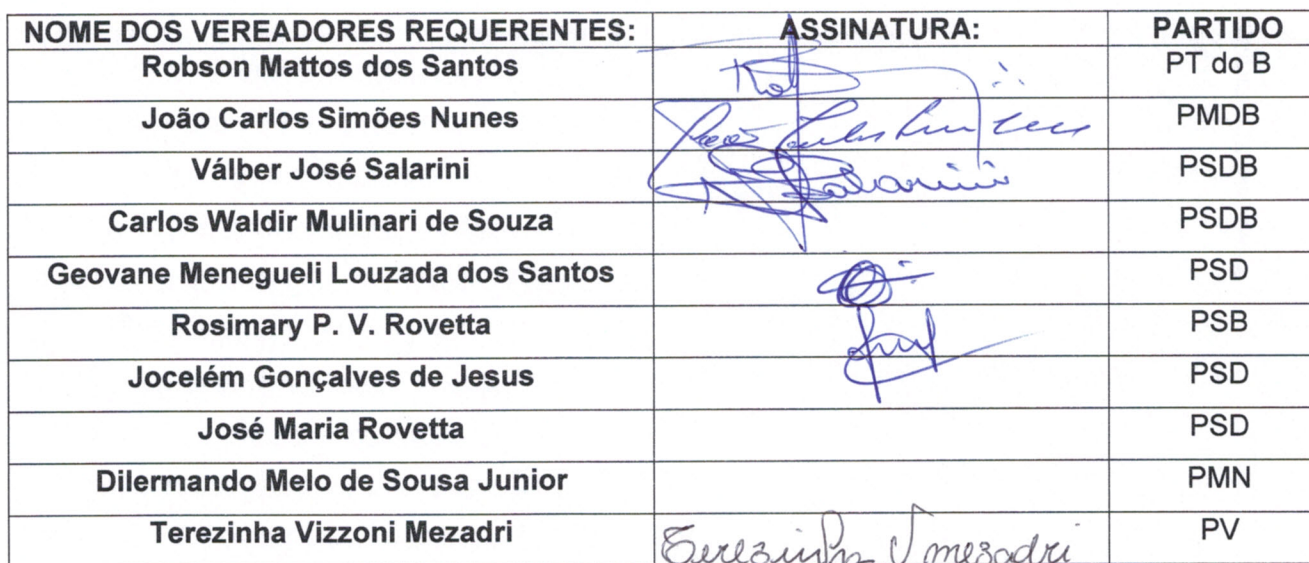 NOME DOS VEREADORES REQUERENTES: ASSINATURA: PARTIDO
Robson Mattos dos Santos PT do B
João Carlos Simões Nunes PMDB
Válber José Salarini Salarini PSDB
Carlos Waldir Mulinari de Souza PSDB
Geovane Menegueli Louzada dos Santos PSD
Rosimary P. V. Rovetta PSB
Jocelém Gonçalves de Jesus PSD
José Maria Rovetta PSD
Dilermando Melo de Sousa Junior PMN
Terezinha Vizzoni Mezadri Terezinha V mezadri PV